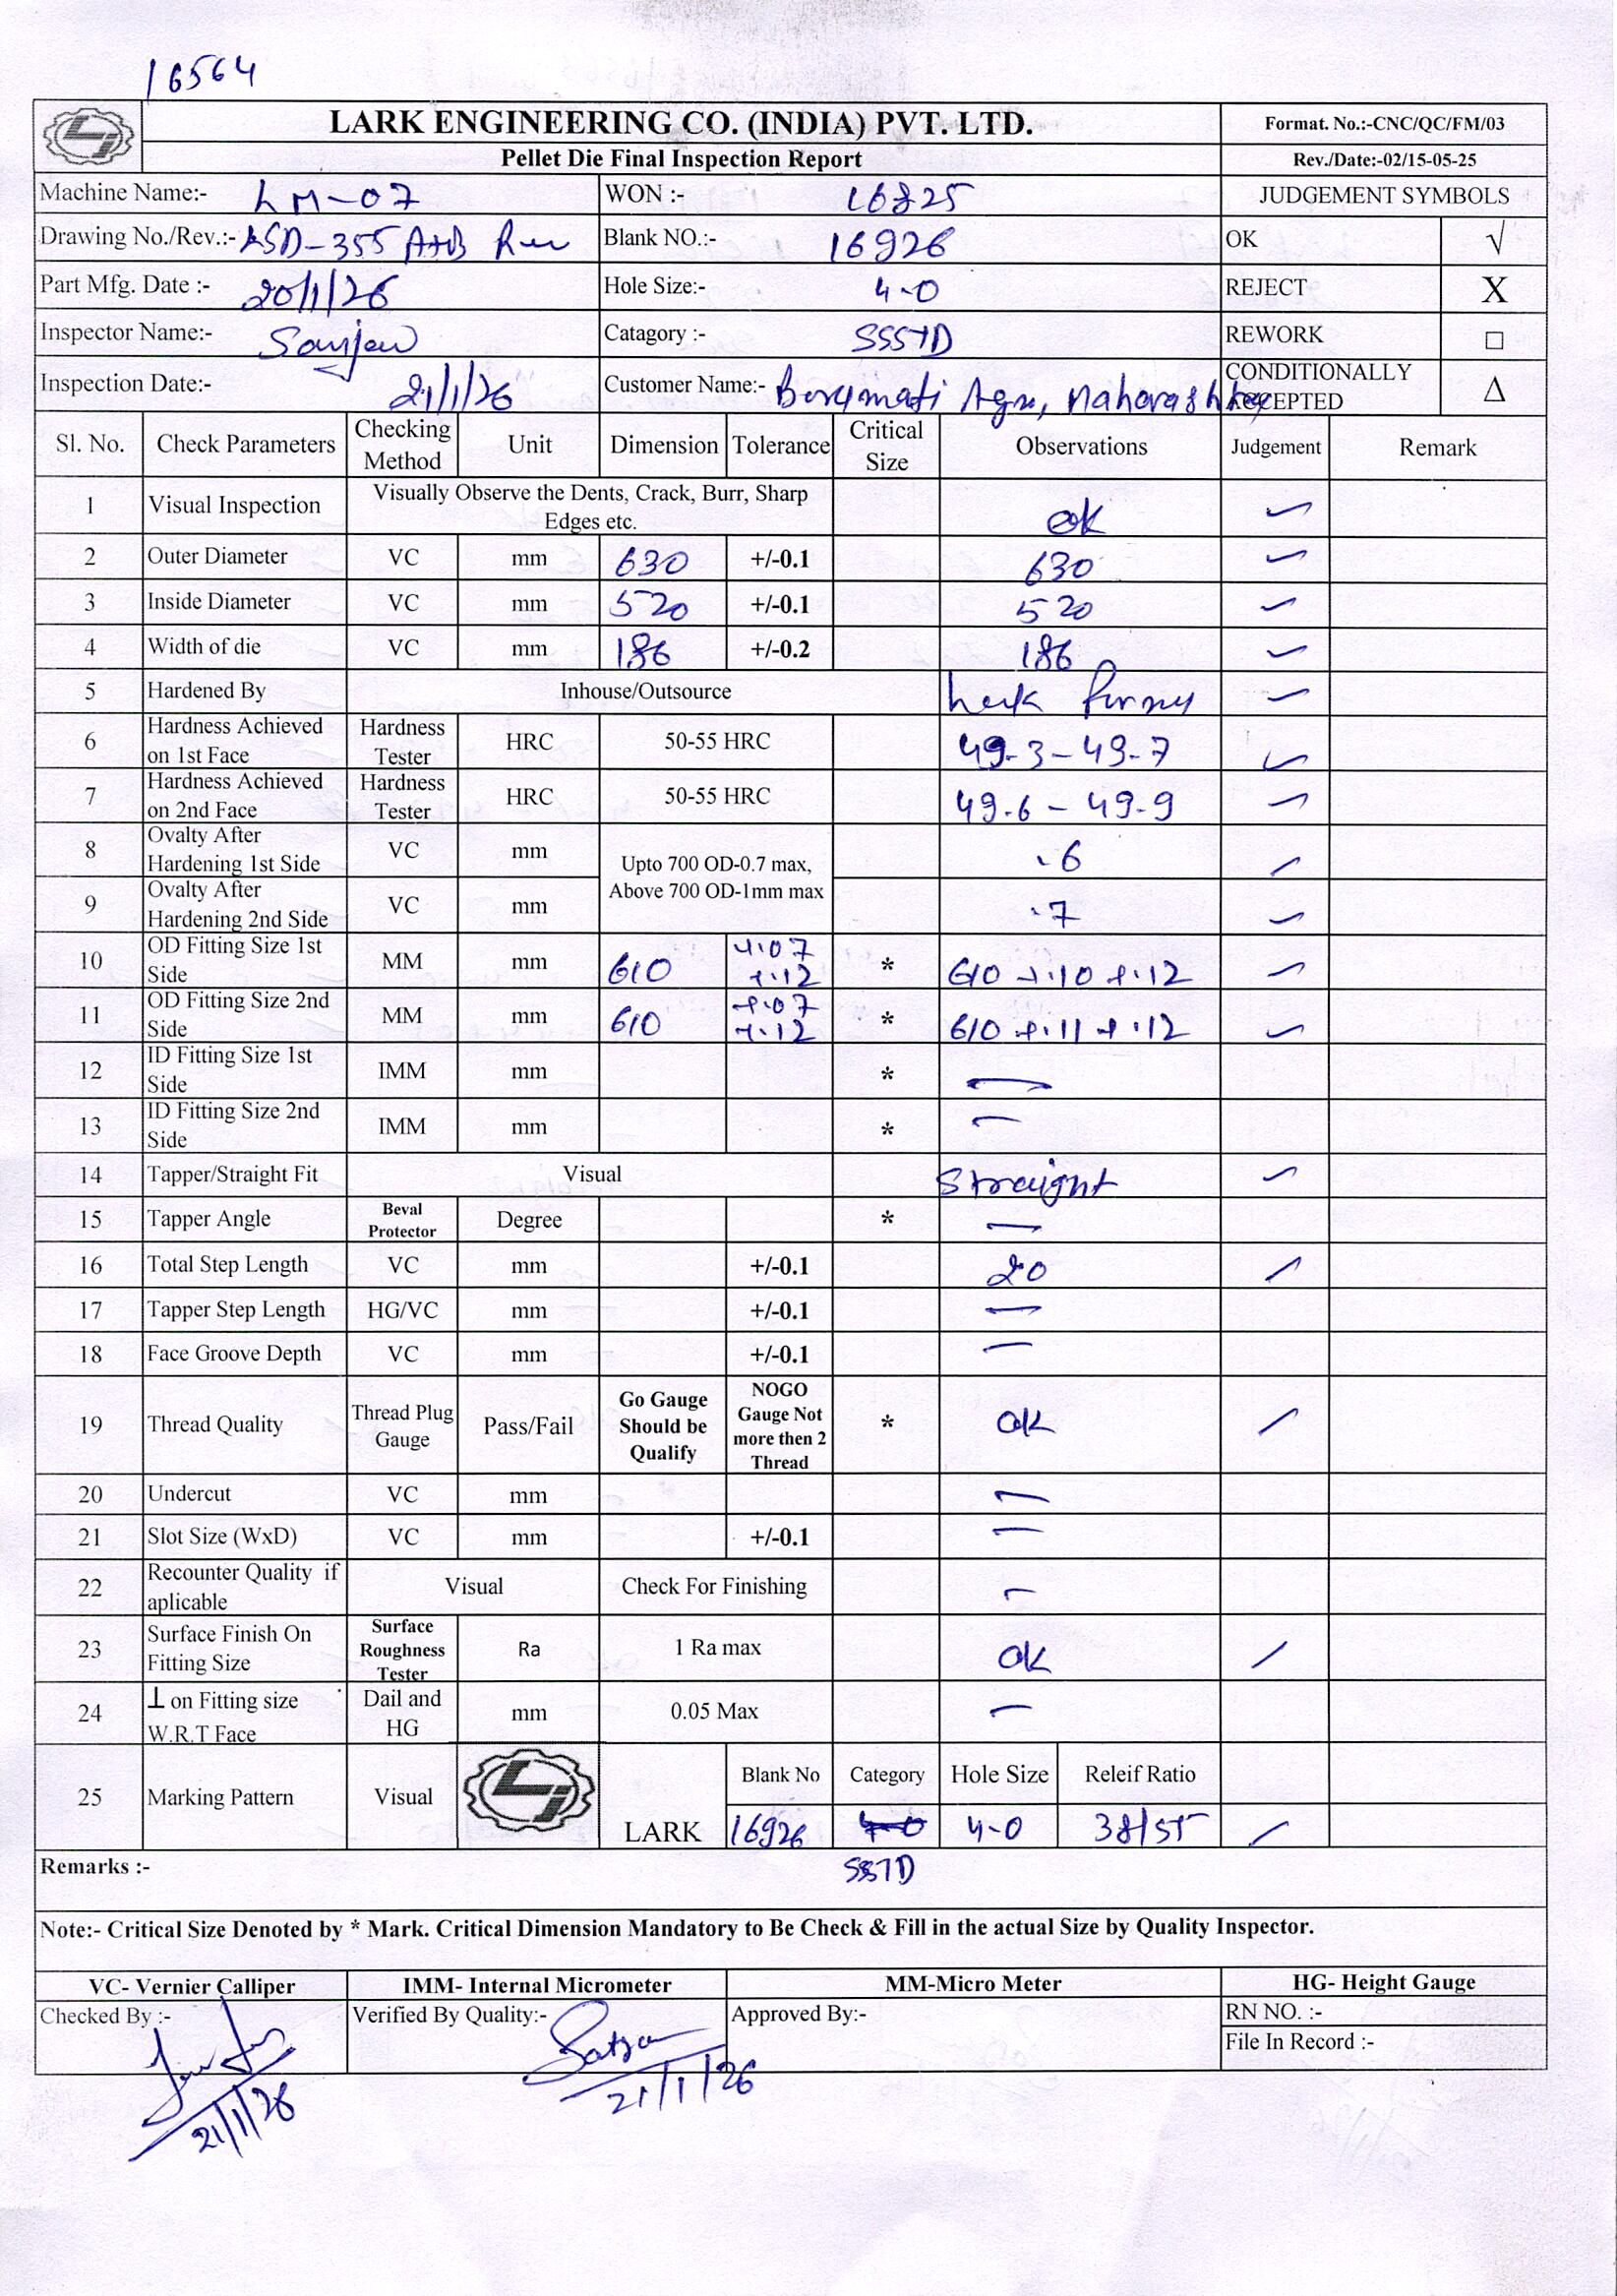 16564
LARK ENGINEERING CO. (INDIA) PVT. LTD.
Format. No.:-CNC/QC/FM/03
Pellet Die Final Inspection Report
Rev./Date:-02/15-05-25
Machine Name:- LM-07 WON :- 16825 JUDGEMENT SYMBOLS
Drawing No./Rev.:- ASD-355 A+B Blank NO.:- 16926 OK √
Part Mfg. Date :- 20/1/26 Hole Size:- 4.0 REJECT X
Inspector Name:- Sanjeev Catagory :- SSSTD REWORK □
Inspection Date:- 21/1/26 Customer Name:- Agro, Maharashtra CONDITIONALLY ACCEPTED Δ
Sl. No. Check Parameters Checking Method Unit Dimension Tolerance Critical Size Observations Judgement Remark
1 Visual Inspection Visually Observe the Dents, Crack, Burr, Sharp Edges etc. ok ✓
2 Outer Diameter VC mm 630 +/-0.1 630 ✓
3 Inside Diameter VC mm 520 +/-0.1 520 ✓
4 Width of die VC mm 186 +/-0.2 186 ✓
5 Hardened By Inhouse/Outsource ✓
6 Hardness Achieved on 1st Face Hardness Tester HRC 50-55 HRC 49.3 - 49.7 ✓
7 Hardness Achieved on 2nd Face Hardness Tester HRC 50-55 HRC 49.6 - 49.9 ✓
8 Ovalty After Hardening 1st Side VC mm Upto 700 OD-0.7 max, Above 700 OD-1mm max .6 ✓
9 Ovalty After Hardening 2nd Side VC mm .7 ✓
10 OD Fitting Size 1st Side MM mm 610 +.07 +.12 * 610 +.10 +.12 ✓
11 OD Fitting Size 2nd Side MM mm 610 +.07 +.12 * 610 +.11 +.12 ✓
12 ID Fitting Size 1st Side IMM mm * —
13 ID Fitting Size 2nd Side IMM mm * —
14 Tapper/Straight Fit Visual Straight ✓
15 Tapper Angle Beval Protector Degree * —
16 Total Step Length VC mm +/-0.1 20 ✓
17 Tapper Step Length HG/VC mm +/-0.1 —
18 Face Groove Depth VC mm +/-0.1 —
19 Thread Quality Thread Plug Gauge Pass/Fail Go Gauge Should be Qualify NOGO Gauge Not more then 2 Thread * ok ✓
20 Undercut VC mm —
21 Slot Size (WxD) VC mm +/-0.1 —
22 Recounter Quality if aplicable Visual Check For Finishing —
23 Surface Finish On Fitting Size Surface Roughness Tester Ra 1 Ra max ok ✓
24 ⊥ on Fitting size W.R.T Face Dail and HG mm 0.05 Max —
25 Marking Pattern Visual LARK Blank No Category Hole Size Releif Ratio
16926 4.0 4.0 38/55 ✓
Remarks :- SSTD
Note:- Critical Size Denoted by * Mark. Critical Dimension Mandatory to Be Check & Fill in the actual Size by Quality Inspector.
VC- Vernier Calliper IMM- Internal Micrometer MM-Micro Meter HG- Height Gauge
Checked By :- Verified By Quality:- Approved By:- RN NO. :-
File In Record :-
21/1/26
21/1/26